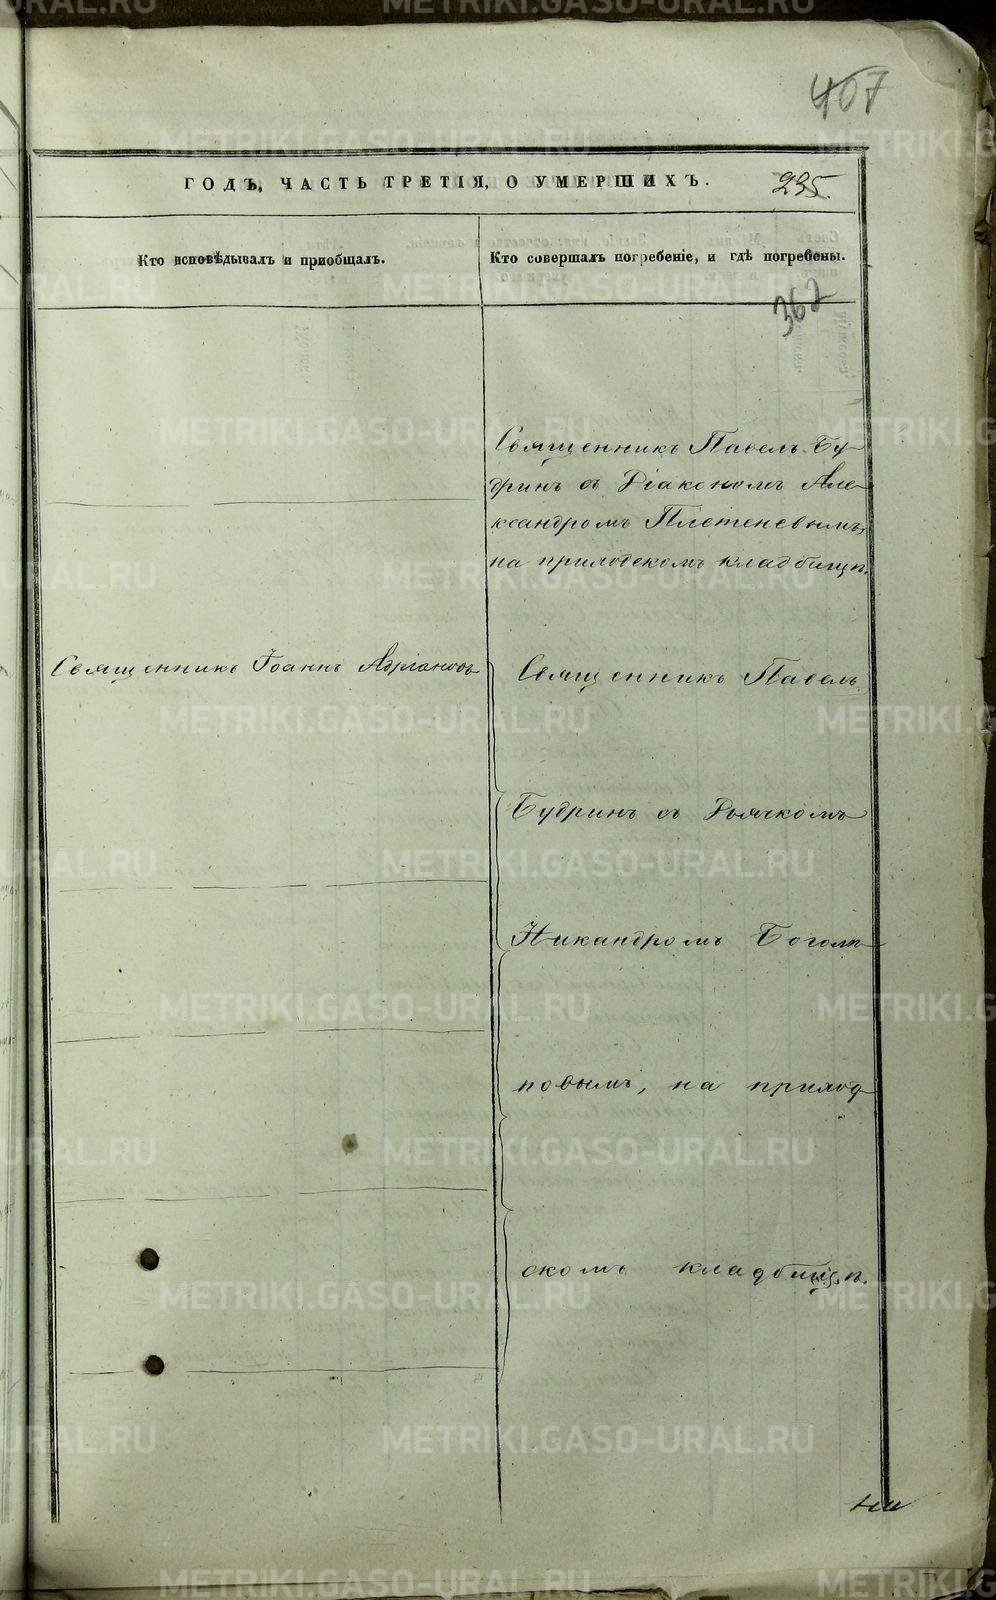 407
ГОДЪ, ЧАСТЬ ТРЕТІЯ, О УМЕРШИХЪ.
295.
Кто исповѣдывалъ и пріобщалъ.
Кто совершалъ погребеніе, и гдѣ погребены.
362
Священникъ Павелъ Бу-
дринъ съ Діакономъ Але-
ксандромъ Плетеневымъ,
на приходскомъ кладбищѣ.
Священникъ Іоаннъ Адріановъ
Священникъ Павелъ
Будринъ съ Дьячкомъ
Никандромъ Боголѣ-
повымъ, на приход-
скомъ кладбищѣ.
METRIKI.GASO-URAL.RU